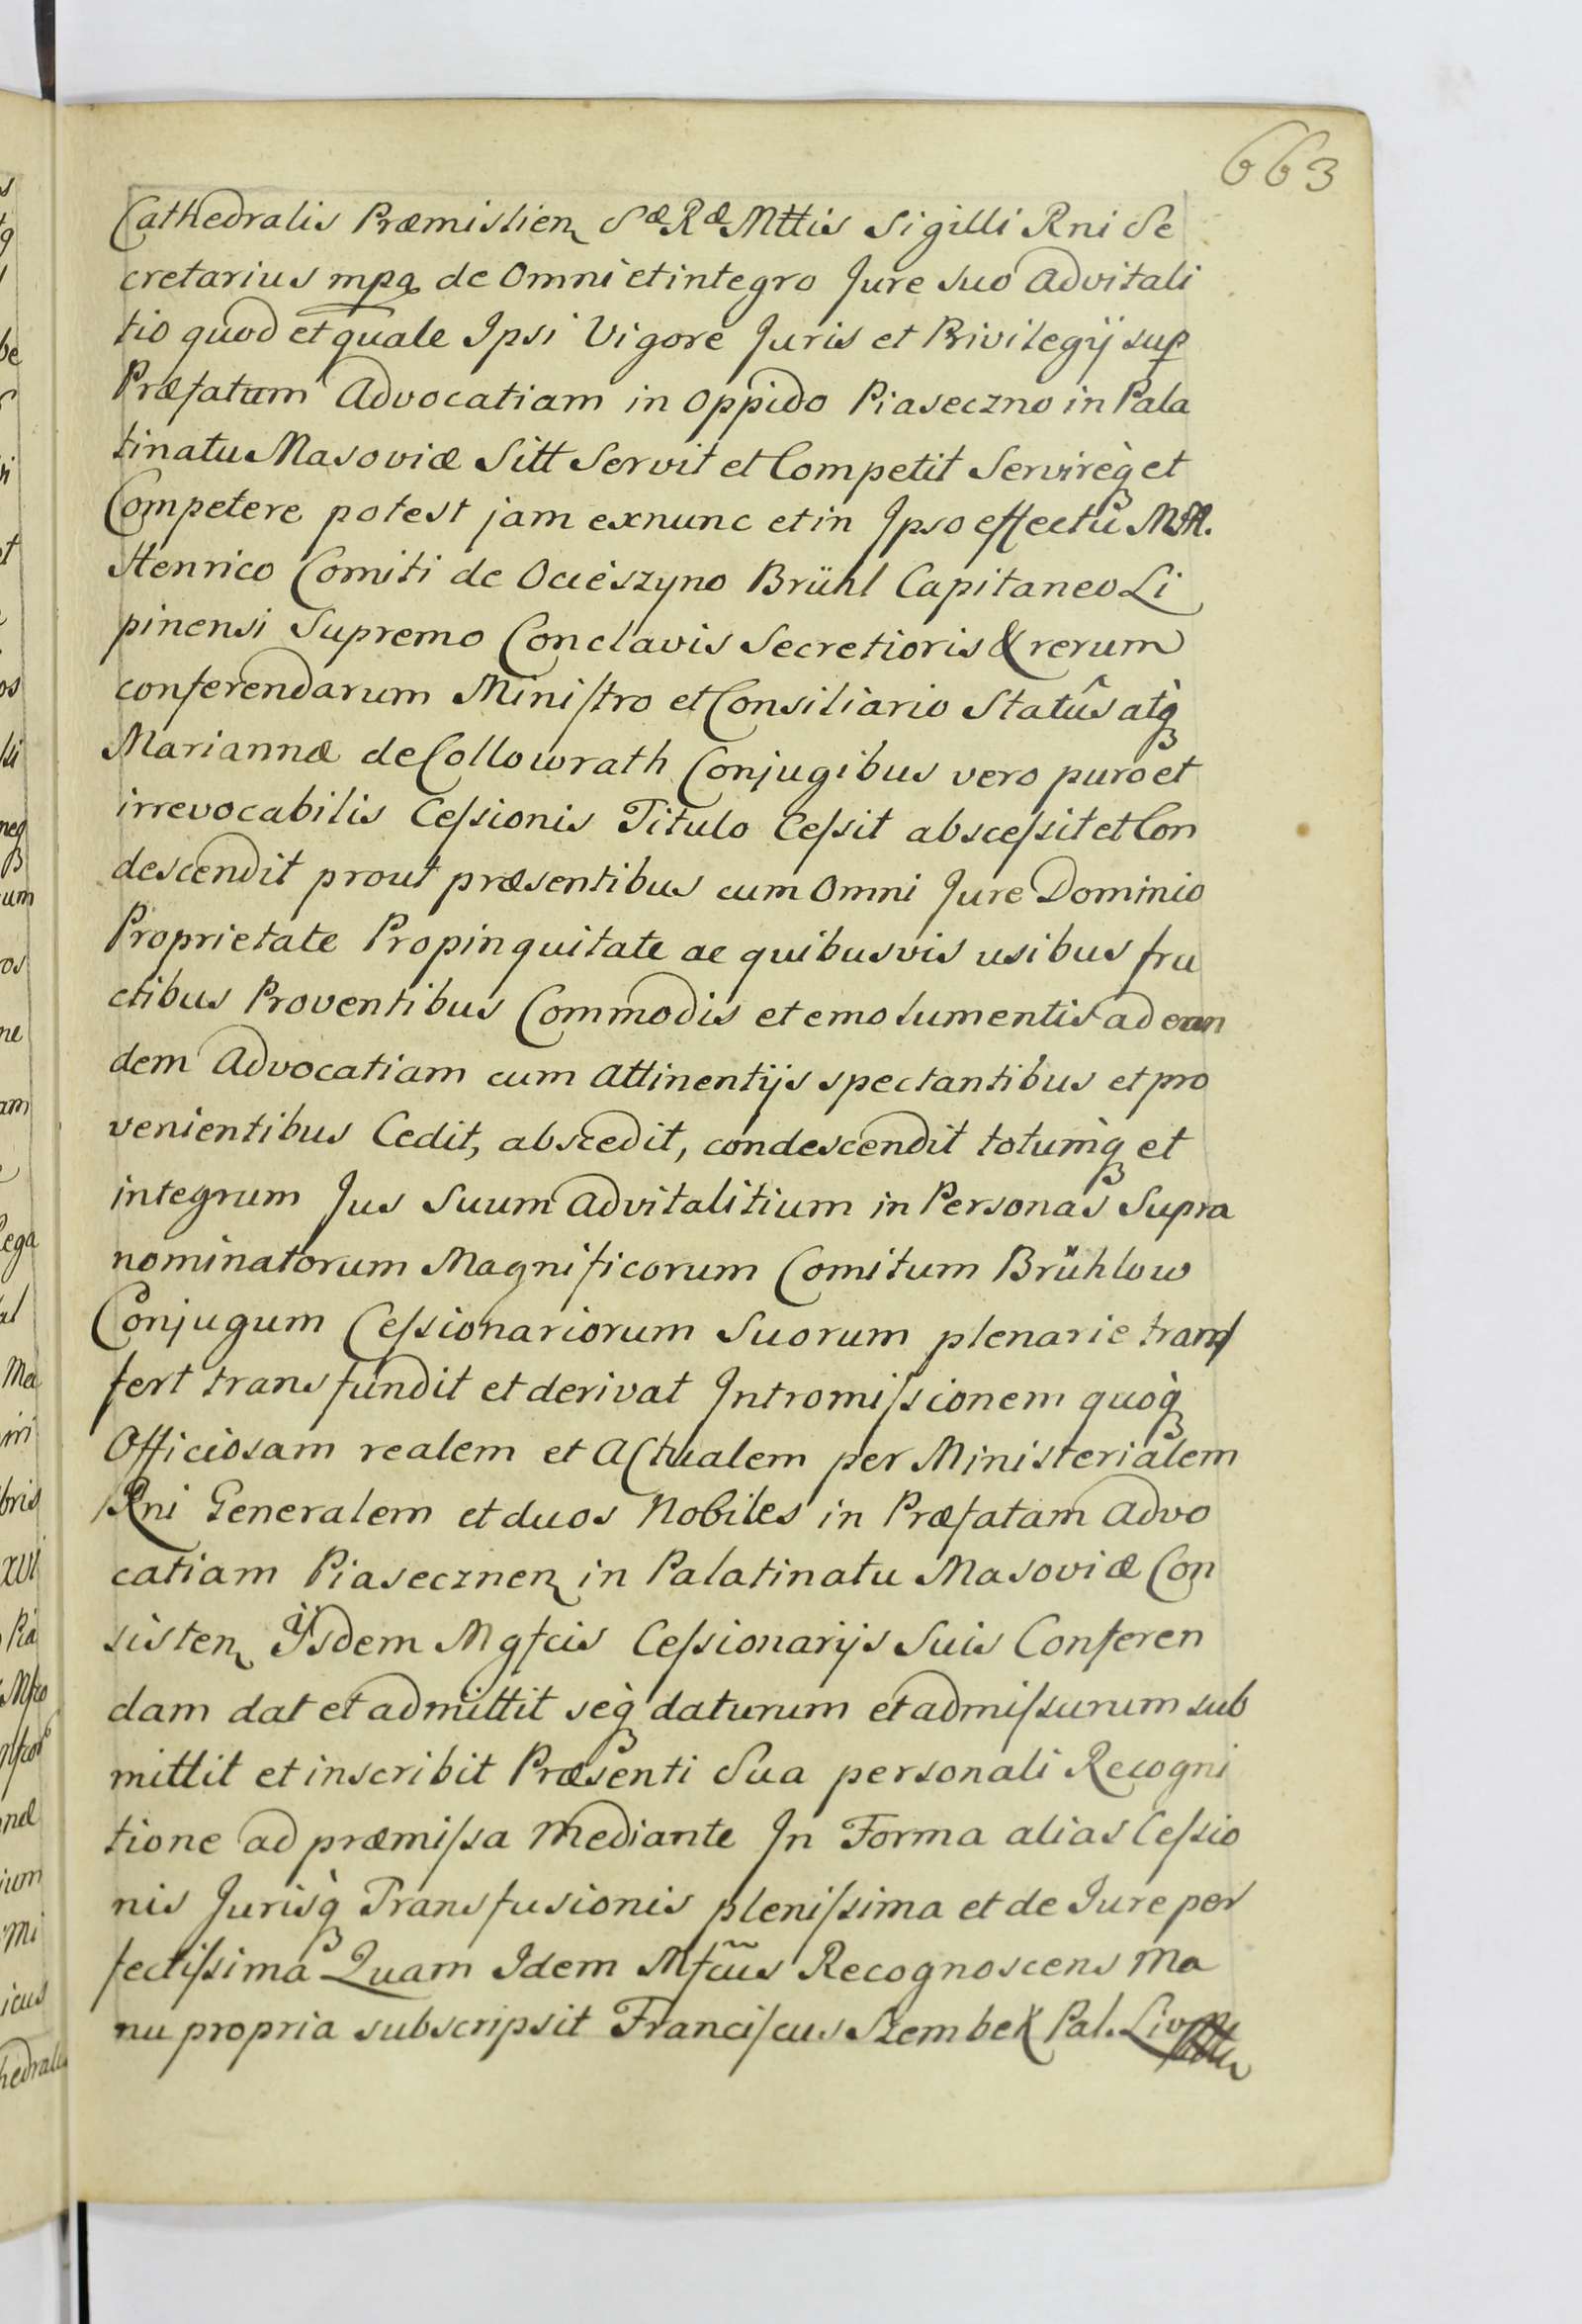 663
Cathedralis Præmislien S æ R æ Mttis Sigilli Rni Se
cretarius mpa de Omni et integro Jure suo Advitali
tio quod et quale Ipsi Vigore Juris et Privilegÿ sup
Præfatam Advocatiam in Oppido Piaseczno in Pala
tinatu Masoviæ Sitt Servit et Competit Servireq̀ et
Competere potest jam exnunc et in Ipso effectu M M.
Henrico Comiti de Ocieszyno Brühl Capitaneo Li
pinensi Supremo Conclavis Secretioris & rerum
conferendarum Ministro et Consiliario Statûs atq̀
Mariannæ de Collowrath Conjugibus vero puro et
irrevocabilis Cessionis Titulo Cessit abscessit et Con
descendit prout præsentibus cum Omni Jure Dominio
Proprietate Propinquitate ac quibusvis usibus fru
ctibus Proventibus Commodis et emolumentis ad ean
dem Advocatiam cum Attinentijs spectantibus et pro
venientibus Cedit, abscedit, condescendit totumq̀ et
integrum Jus Suum Advitalitium in Personas Supra
nominatorum Magnificorum Comitum Brühlow
Conjugum Cessionariorum Suorum plenarie trans
fert transfundit et derivat Intromissionem quoq̀
Officiosam realem et Actualem per Ministerialem
Rni Generalem et duos Nobiles in Præfatam Advo
catiam Piasecznen in Palatinatu Masoviæ Con
sisten Ijsdem Mgfcis Cessionarijs Suis Conferen
dam dat et admittit seq̀ daturum et admissurum sub
mittit et inscribit Præsenti Sua personali Recogni
tione ad præmissa Mediante In Forma alias Cessio
nis Jurisq̀ Transfusionis plenissima et de Iure per
fectissima Quam Idem Mfcus Recognoscens Ma
nu propria subscripsit Franciscus Szembek Pal. Liv